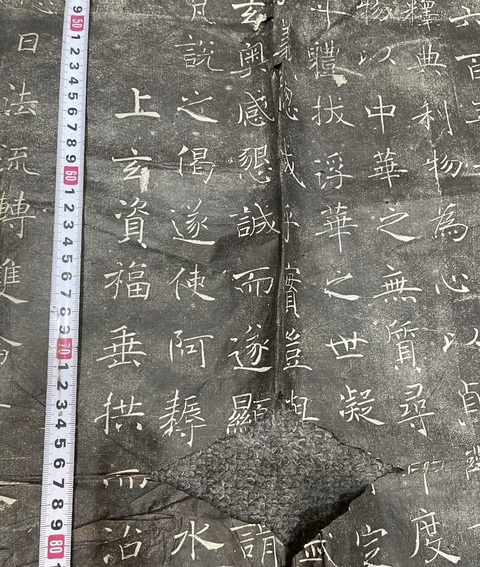 六百五
釋典利物為心以貞
物以中華之無質尋印度
體拔浮華之世凝定
義誠乎實豈
玄奧感懇誠而遂顯請
凡說之偈遂使阿耨水
上玄資福垂拱而治
9 50 1 2 3 4 5 6 7 8 9 60 1 2 3 4 5 6 7 8 9 70 1 2 3 4 5 6 7 8 9 80
日法流轉雙